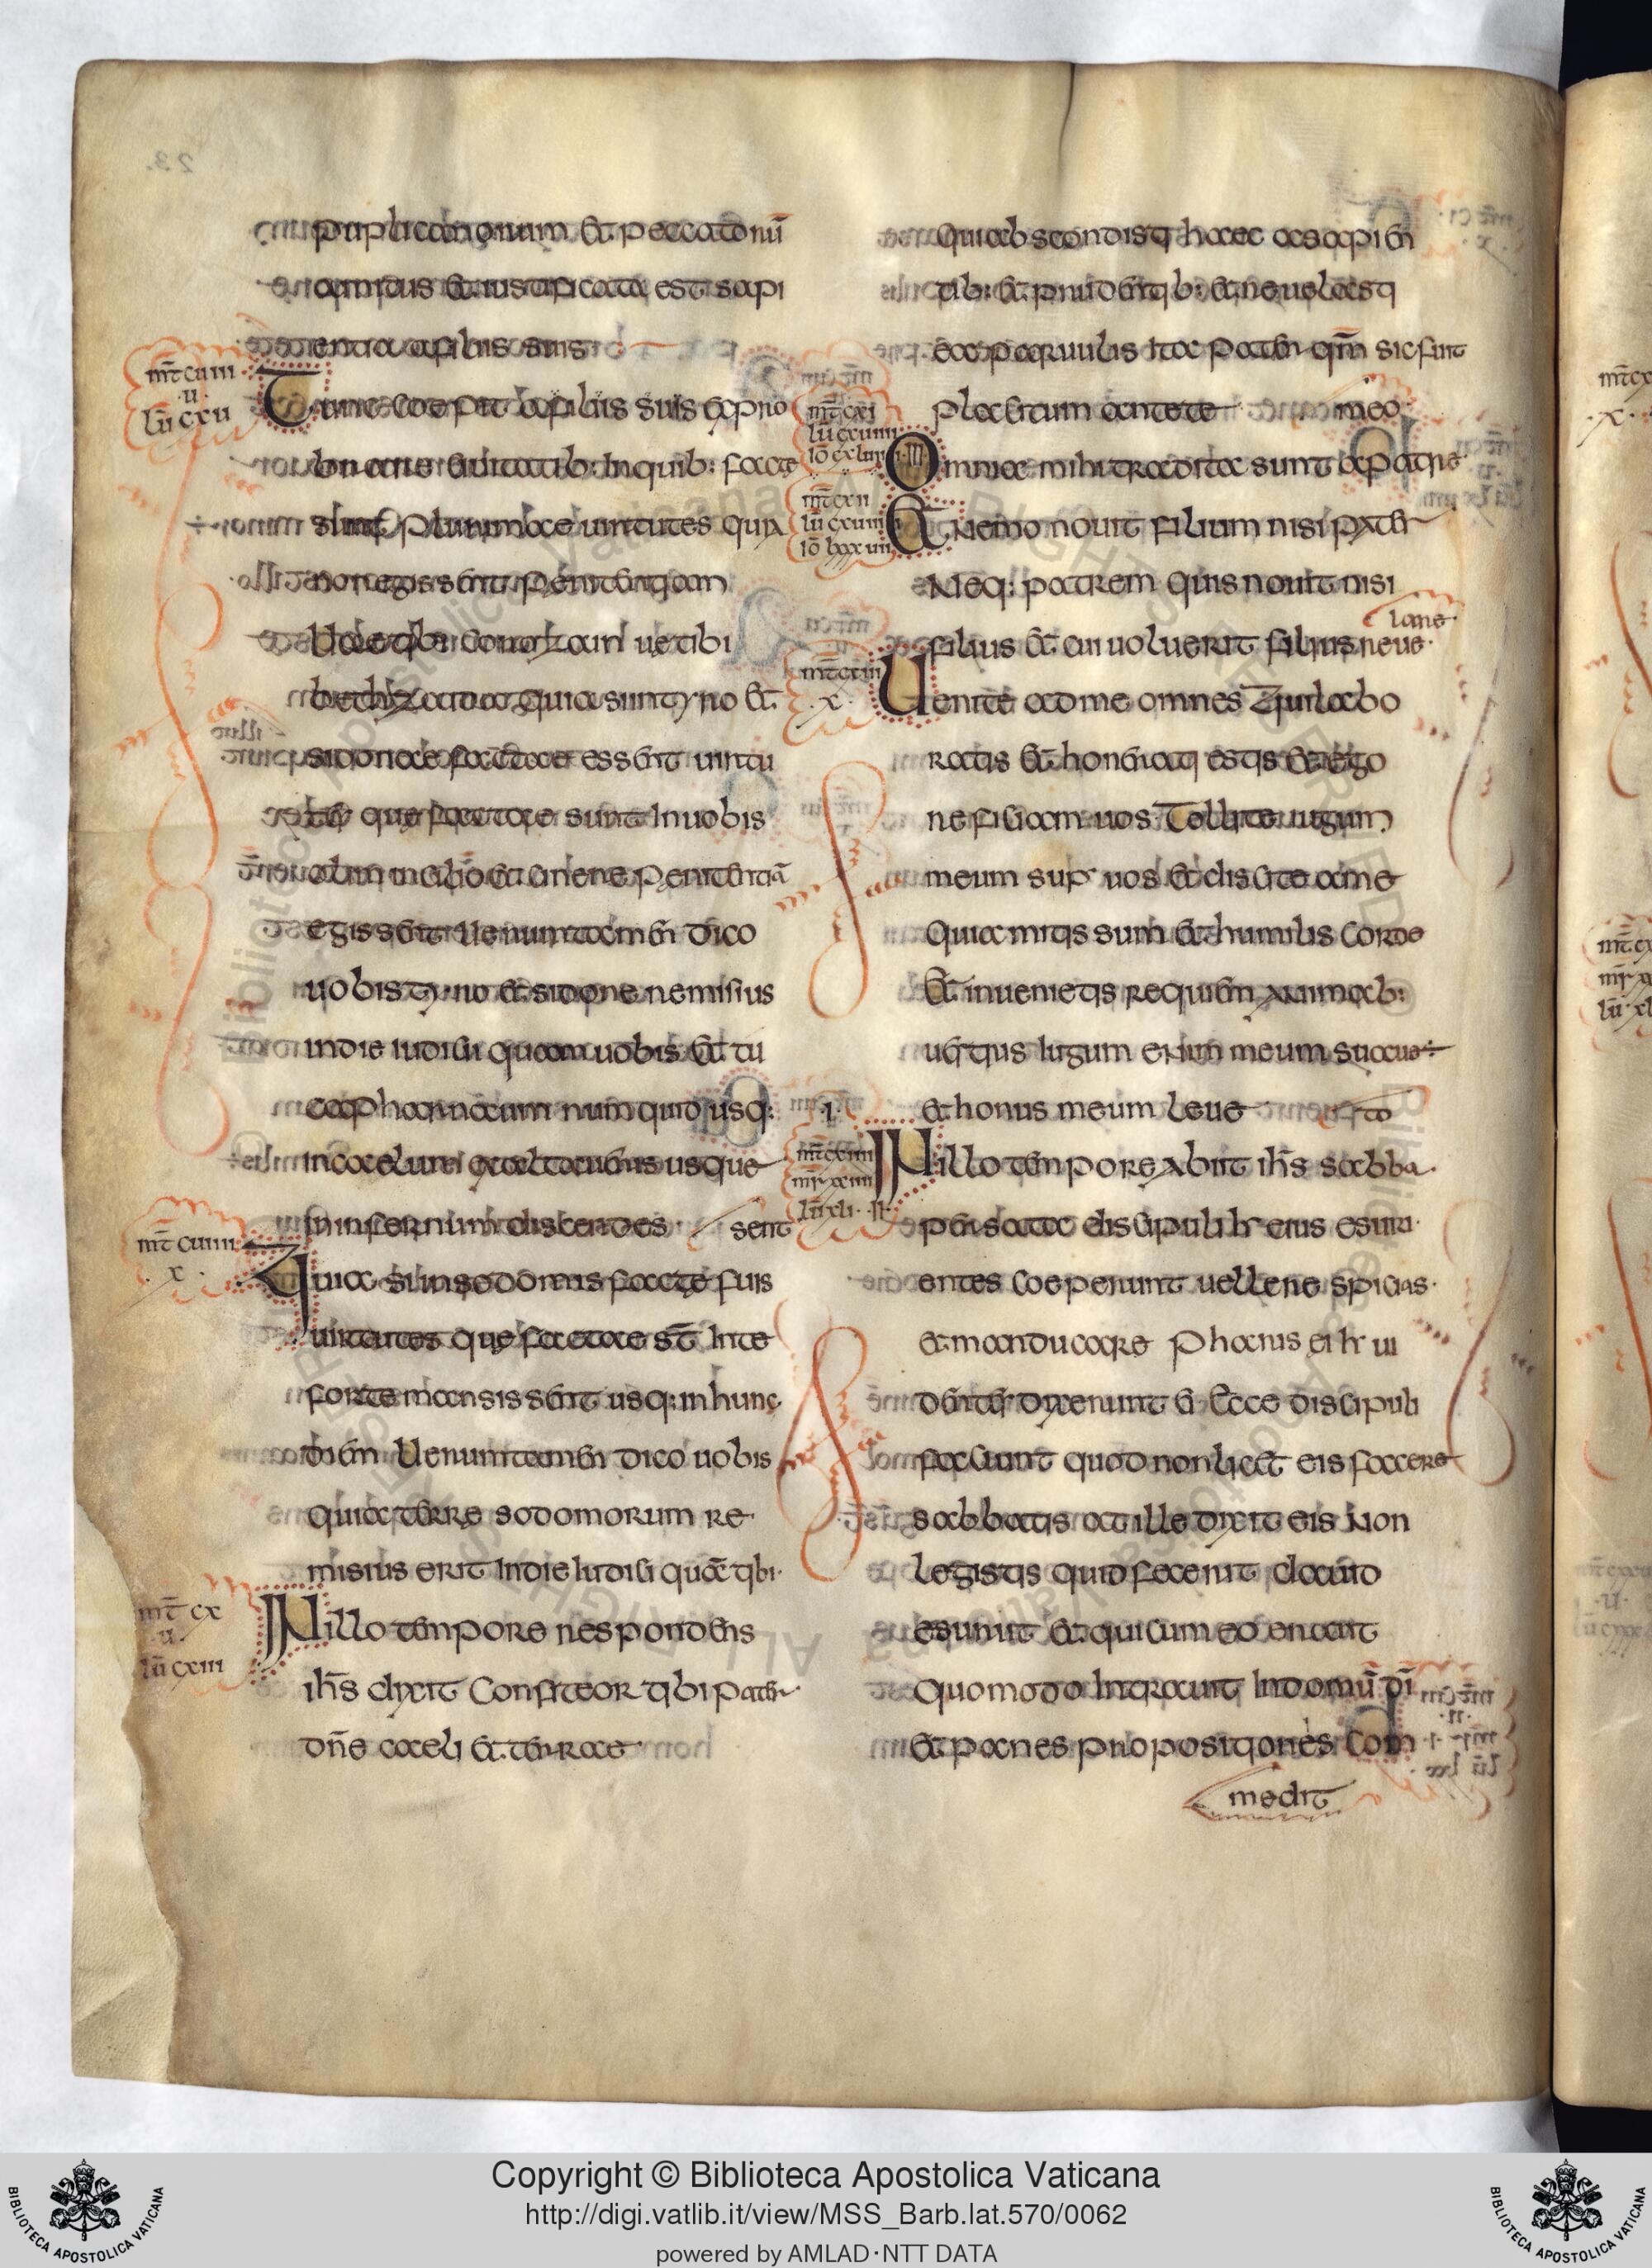 puplicanorum et peccatorū
amicus et iustificata est sapi
entia a filiis suis
Tunc coepit a filiis suis expro
brare ciuitatib: in quib: facte
sunt plurimae uirtutes quia
non egissent penitentiam
Uae tibi corozain uae tibi
bethzaida quia si in tyro et
sidonae factae essent uirtu
tes que factae sunt in uobis
olim in cilicio et cinere penitentiā
egissent Uerumtamen dico
uobis tyro et sidone remisius
in die iudicii quam uobis et tu
capharnaum numquid usq:
in caelum exaltaueris usque
in infernum discendes
sent
Quia si in sodomis facte fuis
uirtutes que factae st̄ in te
forte mansissent usq: in hunc
diem Uerumtamen dico uobis
quia terre sodomorum re
misius erit in die iudicii quā tibi
IN illo tempore respondens
ihs̄ dixit Confiteor tibi pater
dn̄e caeli et terrae
mt̄ cuiii
u
lū cxu
mt̄ cuiiii
x
mt̄ cx
u
lū cxiii
qui abscondisti haec a sapien
tib: et prudentib: et reuelasti
ea paruulis ita pater qm̄ sic fuit
placitum ante te
meo
Omnia mihi tradita sunt a patre
Et nemo nouit filium nisi pater
Neq: patrem quis nouit nisi
lare
filius et cui uoluerit filius reue
Uenite ad me omnes qui labo
ratis et honerati estis et ego
reficiam uos Tollite iugum
meum sup uos et discite a me
Quia mitis sum et humilis corde
Et inuenietis requiem animab:
uestris iugum enim meum suaue
et honus meum leue
to
IN illo tempore abiit ihs̄ sabba
per sata discipuli hr eius esuri
entes coeperunt uellere spicas
et manducare Pharius ei hr ui
dentes dixerunt ei Ecce discipuli
faciunt quod non licet eis facere
sabbatis at ille dixit eis Non
legistis quid fecerit dauid
esuriit et qui cum eo erant
Quomodo intrauit in domū dī
Et panes propositiones com
medit
mt̄ cxi
lū cxuiiii
mt̄ cxii
mt̄ cxiii
x
mt̄ cxiiii
mr̄ xxiiii
lū xli
Copyright © Biblioteca Apostolica Vaticana
http://digi.vatlib.it/view/MSS_Barb.lat.570/0062
powered by AMLAD·NTT DATA
BIBLIOTECA APOSTOLICA VATICANA
BIBLIOTECA APOSTOLICA VATICANA